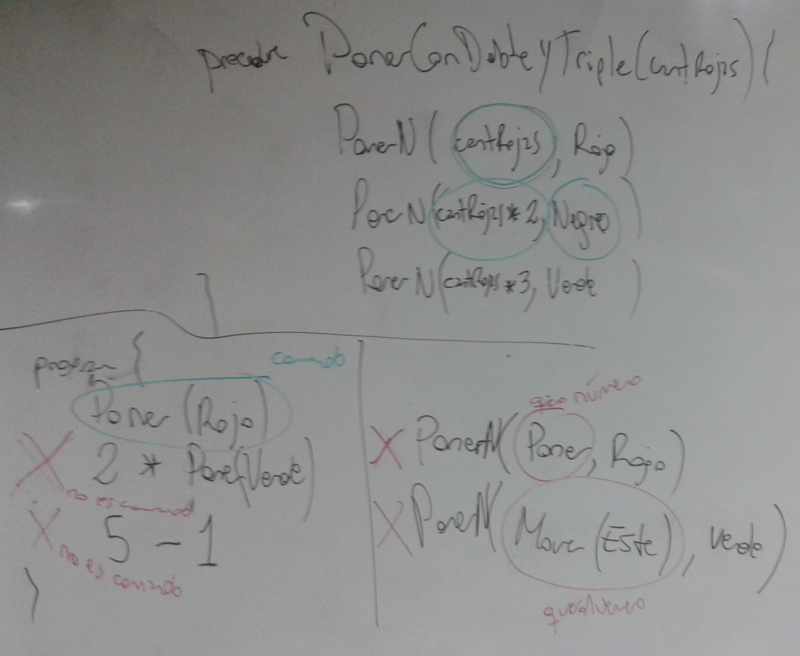 procedure PonerConDobleyTriple(cantRojas){
PonerN( cantRojas, Rojo)
PonerN(cantRojas*2, Negro)
PonerN(cantRojas*3, Verde )
}
program {
comando
Poner (Rojo)
X 2 * Poner(Verde)
no es comando
X 5 - 1
no es comando
}
número
X PonerN(Poner, Rojo)
X PonerN( Mover (Este), Verde)